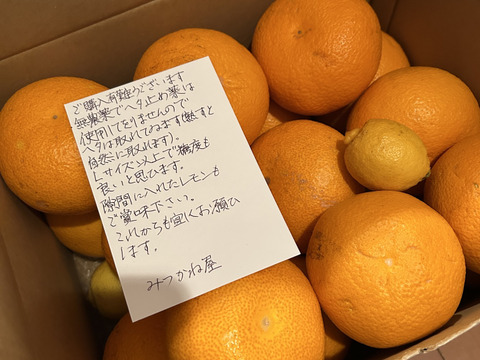 ご購入有難うございます
無農薬でヘタ止め薬は
使用してをりませんので
ヘタは取れてるます(熟すと
自然に取れます)。
Lサイズ以上で糖度も
良いと思ひます。
隙間に入れたレモンも
ご賞味下さい。
これからも宜しくお願ひ
します。
みつかね屋